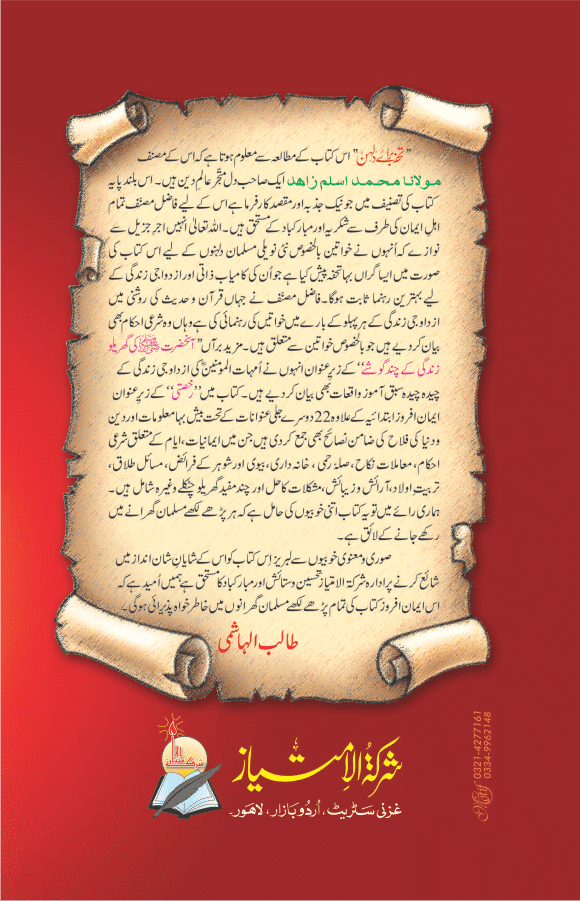 "تحفہ برائے دُلہن" اس کتاب کے مطالعہ سے معلوم ہوتا ہے کہ اس کے مصنف
مولانا محمد اسلم زاھد ایک صاحب دل متبحر عالم دین ہیں۔ اس بلند پایہ
کتاب کی تصنیف میں جو نیک جذبہ اور مقصد کارفرما ہے اس کے لیے فاضل مصنف تمام
اہل ایمان کی طرف سے شکریہ اور مبارکباد کے مستحق ہیں۔ اللہ تعالیٰ انہیں اجر جزیل سے
نوازے کہ اُنہوں نے خواتین بالخصوص نئی نویلی مسلمان دلہنوں کے لیے اس کتاب کی
صورت میں ایسا گراں بہا تحفہ پیش کیا ہے جو اُن کی کامیاب ذاتی اور ازدواجی زندگی کے
لیے بہترین رہنما ثابت ہوگا۔ فاضل مصنّف نے جہاں قرآن و حدیث کی روشنی میں
ازدواجی زندگی کے ہر پہلو کے بارے میں خواتین کی رہنمائی کی ہے وہاں وہ شرعی احکام بھی
بیان کر دیے ہیں جو بالخصوص خواتین سے متعلق ہیں۔ مزید برآں "آنحضرت ﷺ کی گھریلو
زندگی کے چند گوشے" کے زیر عنوان انہوں نے اُمہات المومنینؓ کی ازدواجی زندگی کے
چیدہ چیدہ سبق آموز واقعات بھی بیان کر دیے ہیں۔ کتاب میں "رخصتی" کے زیر عنوان
ایمان افروز ابتدائیہ کے علاوہ 22 دوسرے جلی عنوانات کے تحت بیش بہا معلومات اور دین
و دنیا کی فلاح کی ضامن نصائح بھی جمع کر دی ہیں جن میں ایمانیات، ایام کے متعلق شرعی
احکام، معاملات نکاح، صلہ رحمی، خانہ داری، بیوی اور شوہر کے فرائض، مسائل طلاق،
تربیت اولاد، آرائش و زیبائش، مشکلات کا حل اور چند مفید گھریلو چٹکلے وغیرہ شامل ہیں۔
ہماری رائے میں تو یہ کتاب اتنی خوبیوں کی حامل ہے کہ ہر پڑھے لکھے مسلمان گھرانے میں
رکھے جانے کے لائق ہے۔
صوری و معنوی خوبیوں سے لبریز اِس کتاب کو اس کے شایان شان انداز میں
شائع کرنے پر ادارہ شرکۃ الامتیاز تحسین و ستائش اور مبارکباد کا مستحق ہے ہمیں اُمید ہے کہ
اس ایمان افروز کتاب کی تمام پڑھے لکھے مسلمان گھرانوں میں خاطر خواہ پذیرائی ہوگی۔
طالب الہاشمی
شرکۃُ الامتیاز
غزنی سٹریٹ، اُردو بازار، لاهور۔
Motif 0321-4277161
0334-9962148